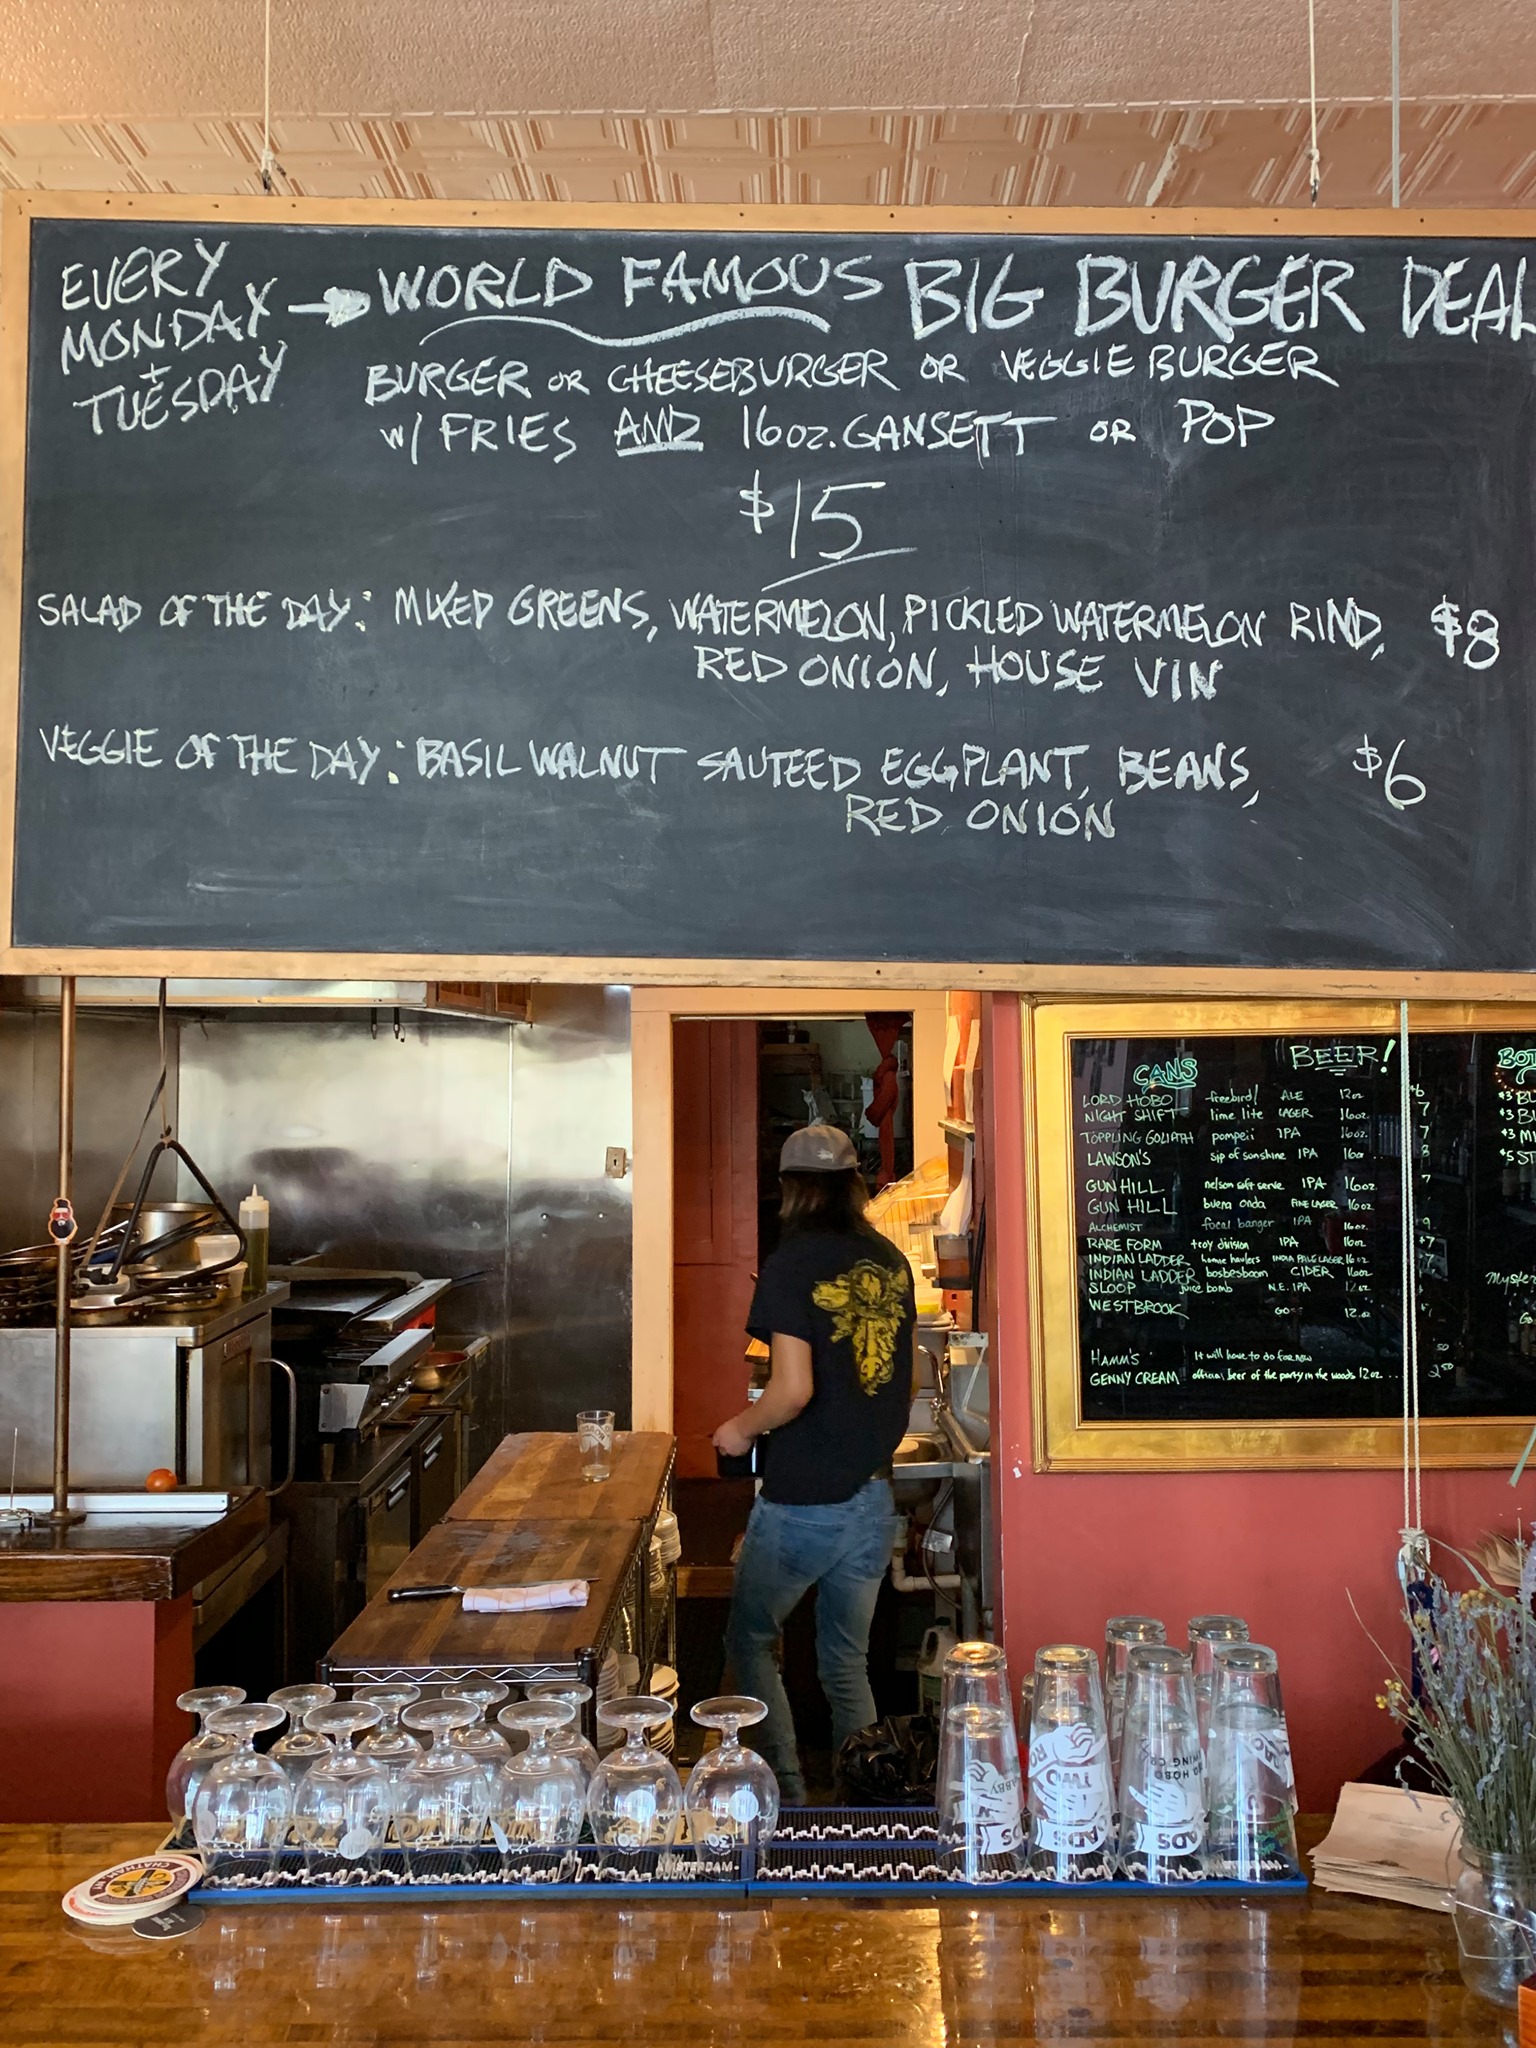 EVERY
MONDAY
+
TUESDAY
→ WORLD FAMOUS BIG BURGER DEAL
BURGER OR CHEESEBURGER OR VEGGIE BURGER
W/ FRIES AND 16 OZ. GANSETT OR POP
$15
SALAD OF THE DAY: MIXED GREENS, WATERMELON, PICKLED WATERMELON RIND, $8
RED ONION, HOUSE VIN
VEGGIE OF THE DAY: BASIL WALNUT SAUTEED EGGPLANT, BEANS, $6
RED ONION
BEER!
CANS
LORD HOBO freebird/ ALE 12oz $6
NIGHT SHIFT lime lite LAGER 16oz. 7
TOPPLING GOLIATH pompeii IPA 16oz. 7
LAWSON'S sip of sunshine IPA 16oz 8
GUN HILL nelson soft serve IPA 16oz. 7
GUN HILL buena onda FINE LAGER 16oz
ALCHEMIST focal banger IPA 16oz. 9
RARE FORM troy division IPA 16oz $7
INDIAN LADDER home haulers INDIA PALE LAGER 16oz 7
INDIAN LADDER bosbesboom CIDER 16oz
SLOOP juice bomb N.E. IPA 12oz
WESTBROOK 12.oz
HAMM'S it will have to do for now
GENNY CREAM official beer of the party in the woods 12oz... 2.50
BOT
$3
$3
$3
$5 ST
CHATHAM, NY
AMSTERDAM
TWO
ROADS
ROADS